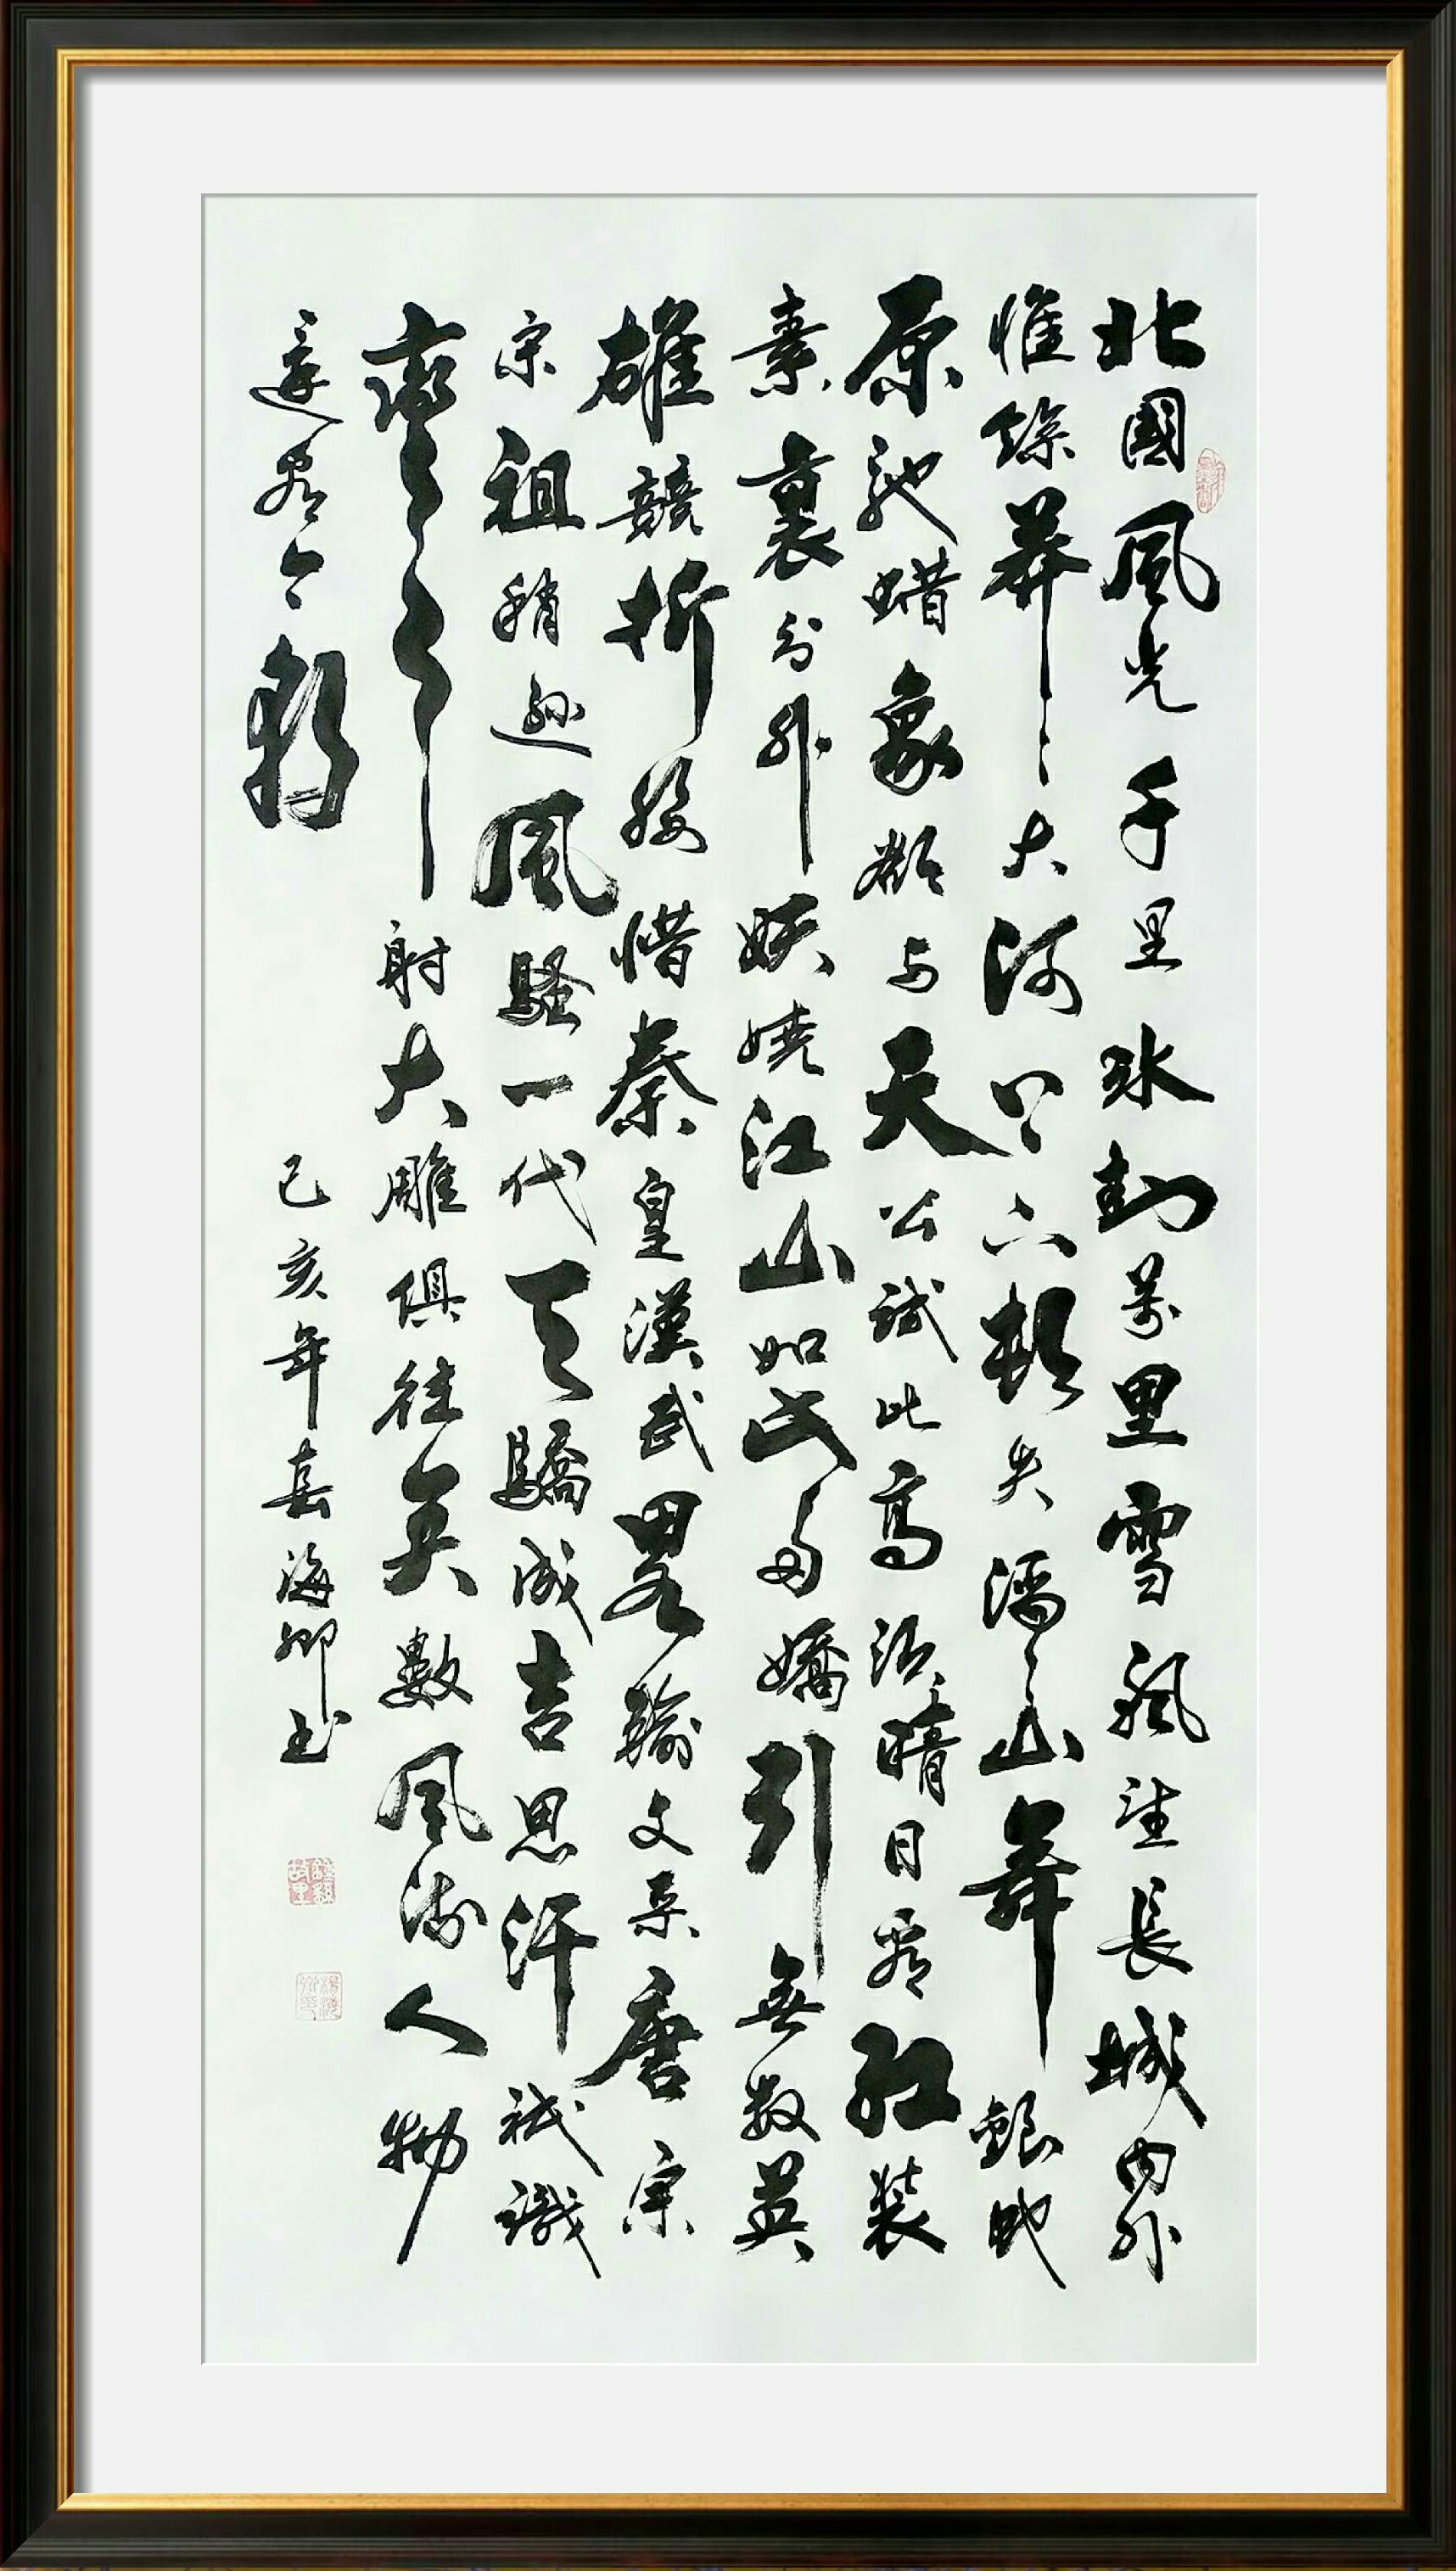 北國風光千里冰封萬里雪飄望長城内外
惟餘莽〻大河上下頓失滔〻山舞銀蛇
原馳蜡象欲与天公試比高須晴日看紅裝
素裹分外妖嬈江山如此多嬌引無数英
雄競折腰惜秦皇漢武畧輸文采唐宗
宋祖稍遜風騷一代天驕成吉思汗祇識
彎弓射大雕俱往矣數風流人物
還看今朝
己亥年海卿书
鍾繇故里